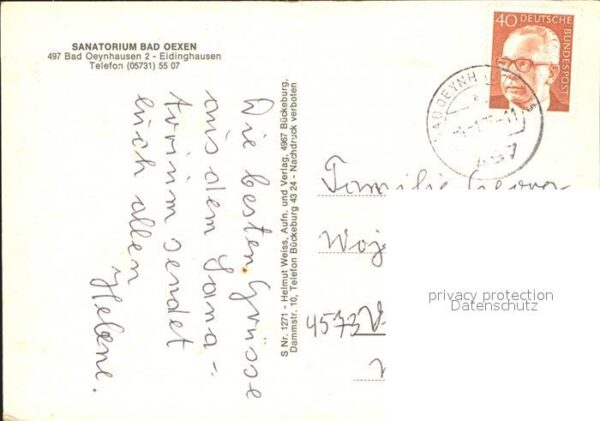 SANATORIUM BAD OEXEN
497 Bad Oeynhausen 2 - Eidinghausen
Telefon (05731) 55 07
Die besten Grüsse
aus dem Sana-
torium sendet
euch allen
Helene.
S Nr. 1271 - Helmut Weiss, Aufn. und Verlag, 4967 Bückeburg,
Dammstr. 10, Telefon Bückeburg 43 24 - Nachdruck verboten
40 DEUTSCHE
BUNDESPOST
BAD OEYNH
497
Familie
Woj
4573
privacy protection
Datenschutz